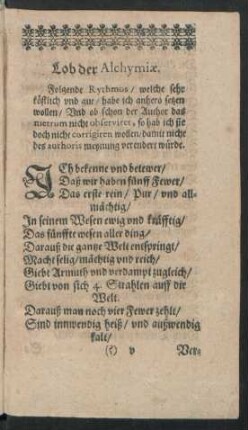 Lob der Alchymiæ.
Folgende Rychmos / welche sehr
köstlich vnd gut / habe ich anhero setzen
wollen / Vnd ob schon der Author das
metrum nicht observiret, so hab ich sie
doch nicht corrigiren wollen / damit nicht
des authoris meynung verendert würde.
ICh bekenne vnd betewer /
Daß wir haben fünff Fewer /
Das erste rein / Pur / vnd all-
mächtig /
In seinem Wesen ewig vnd kräfftig /
Das fünffte wesen aller ding /
Darauß die gantze Welt entspringt /
Macht selig / mächtig vnd reich /
Giebt Armuth vnd verdampt zugleich /
Giebt von sich 4 Strahlen auff die
Welt.
Darauß man noch vier Fewer zehlt /
Sind innwendig heiß / vnd außwendig
kalt /
v Ver-